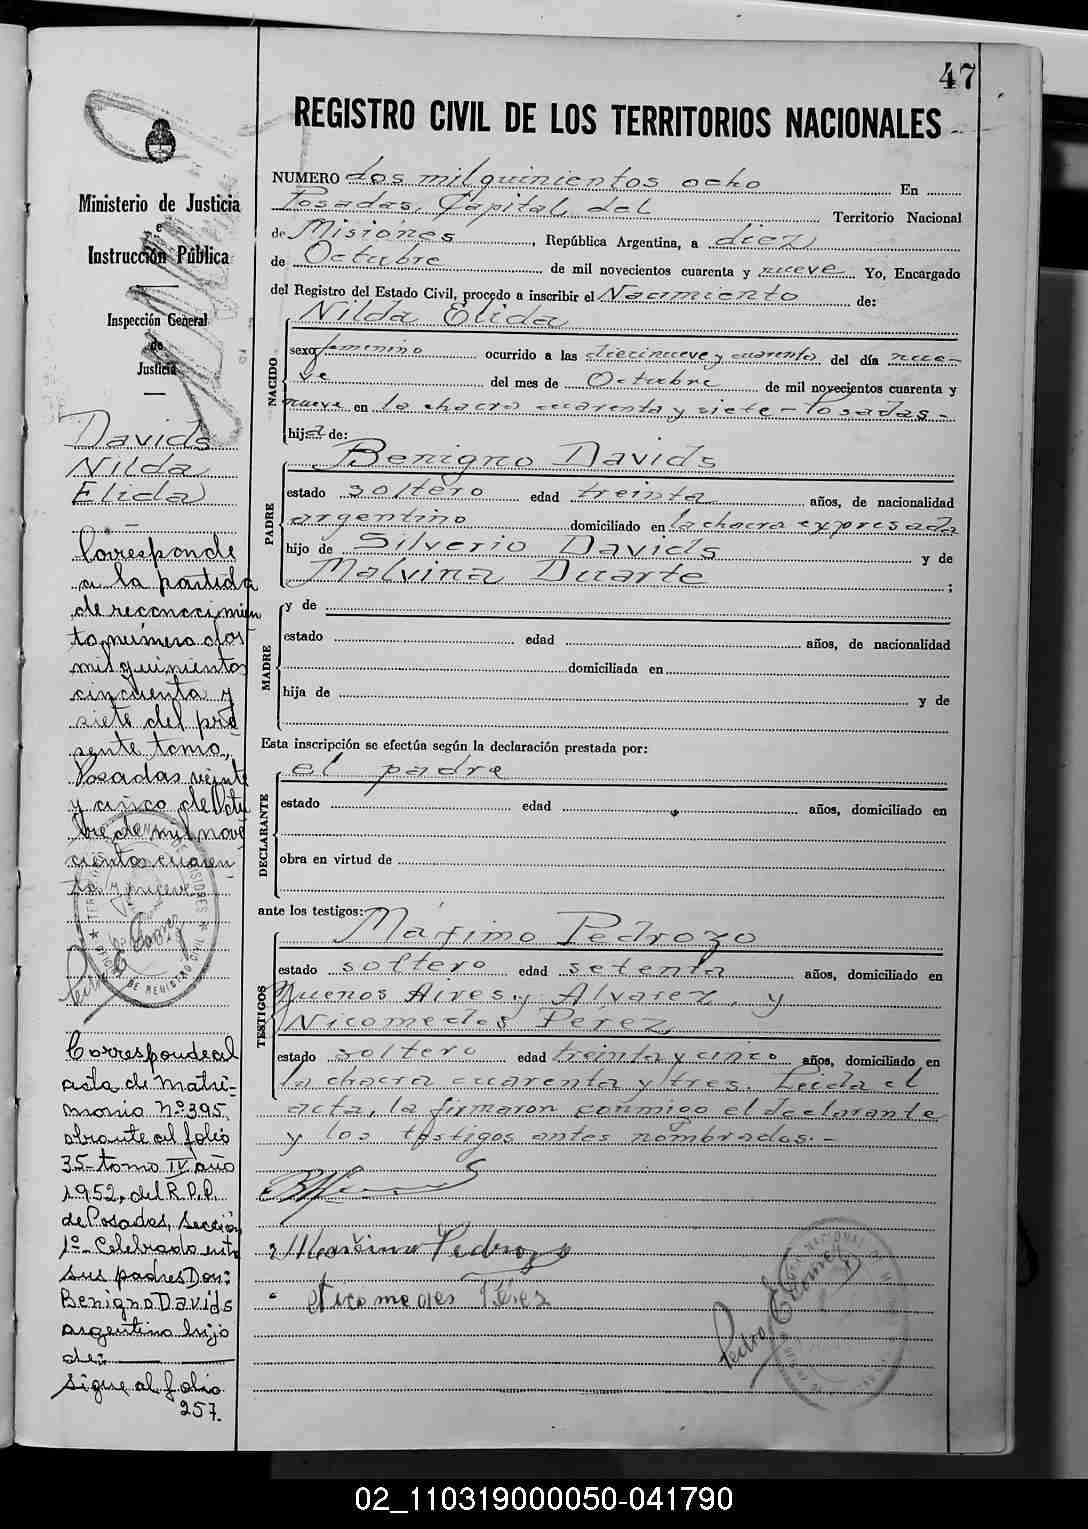 47
REGISTRO CIVIL DE LOS TERRITORIOS NACIONALES
NUMERO dos mil quinientos ocho En
Posadas, Capital del Territorio Nacional
de Misiones, República Argentina, a diez
de Octubre de mil novecientos cuarenta y nueve Yo, Encargado
del Registro del Estado Civil, procedo a inscribir el Nacimiento de:
NACIDO
Nilda Elida
sexo femenino ocurrido a las diecinueve y cuarenta del día nue-
ve del mes de Octubre de mil novecientos cuarenta y
nueve en la chacra cuarenta y siete - Posadas -
hija de:
PADRE
Benigno Davids
estado soltero edad treinta años, de nacionalidad
argentino domiciliado en la chacra expresada
hijo de Silverio Davids y de
Malvina Duarte ;
MADRE
y de
estado edad años, de nacionalidad
domiciliada en
hija de y de
Esta inscripción se efectúa según la declaración prestada por:
DECLARANTE
el padre
estado edad años, domiciliado en
obra en virtud de
ante los testigos:
TESTIGOS
Máximo Pedrozo
estado soltero edad setenta años, domiciliado en
Buenos Aires y Alvarez, y
Nicomedes Pérez,
estado soltero edad treinta y cinco años, domiciliado en
la chacra cuarenta y tres. Leida el
acta, la firmaron conmigo el declarante
y los testigos antes nombrados.-
Maximo Pedrozo
Nicomedes Pérez
Pedro E. Gomez
Ministerio de Justicia
e
Instrucción Pública
Inspección General
de
Justicia
Davids
Nilda
Elida
Corresponde
a la partida
de reconocimien
to número dos
mil quinientos
cincuenta y
siete del pre
sente tomo,
Posadas veinte
y cinco de Octu
bre de mil nove
cientos cuaren
ta y nueve
Pedro E. Gomez
Corresponde al
acta de Matri-
monio Nº 395,
obrante al folio
35- tomo IV año
1952, del R.P.P.
de Posadas, Sección
1º- Celebrado entre
sus padres Don:
Benigno Davids
argentino hijo
de:
sigue al folio
257.
02_110319000050-041790